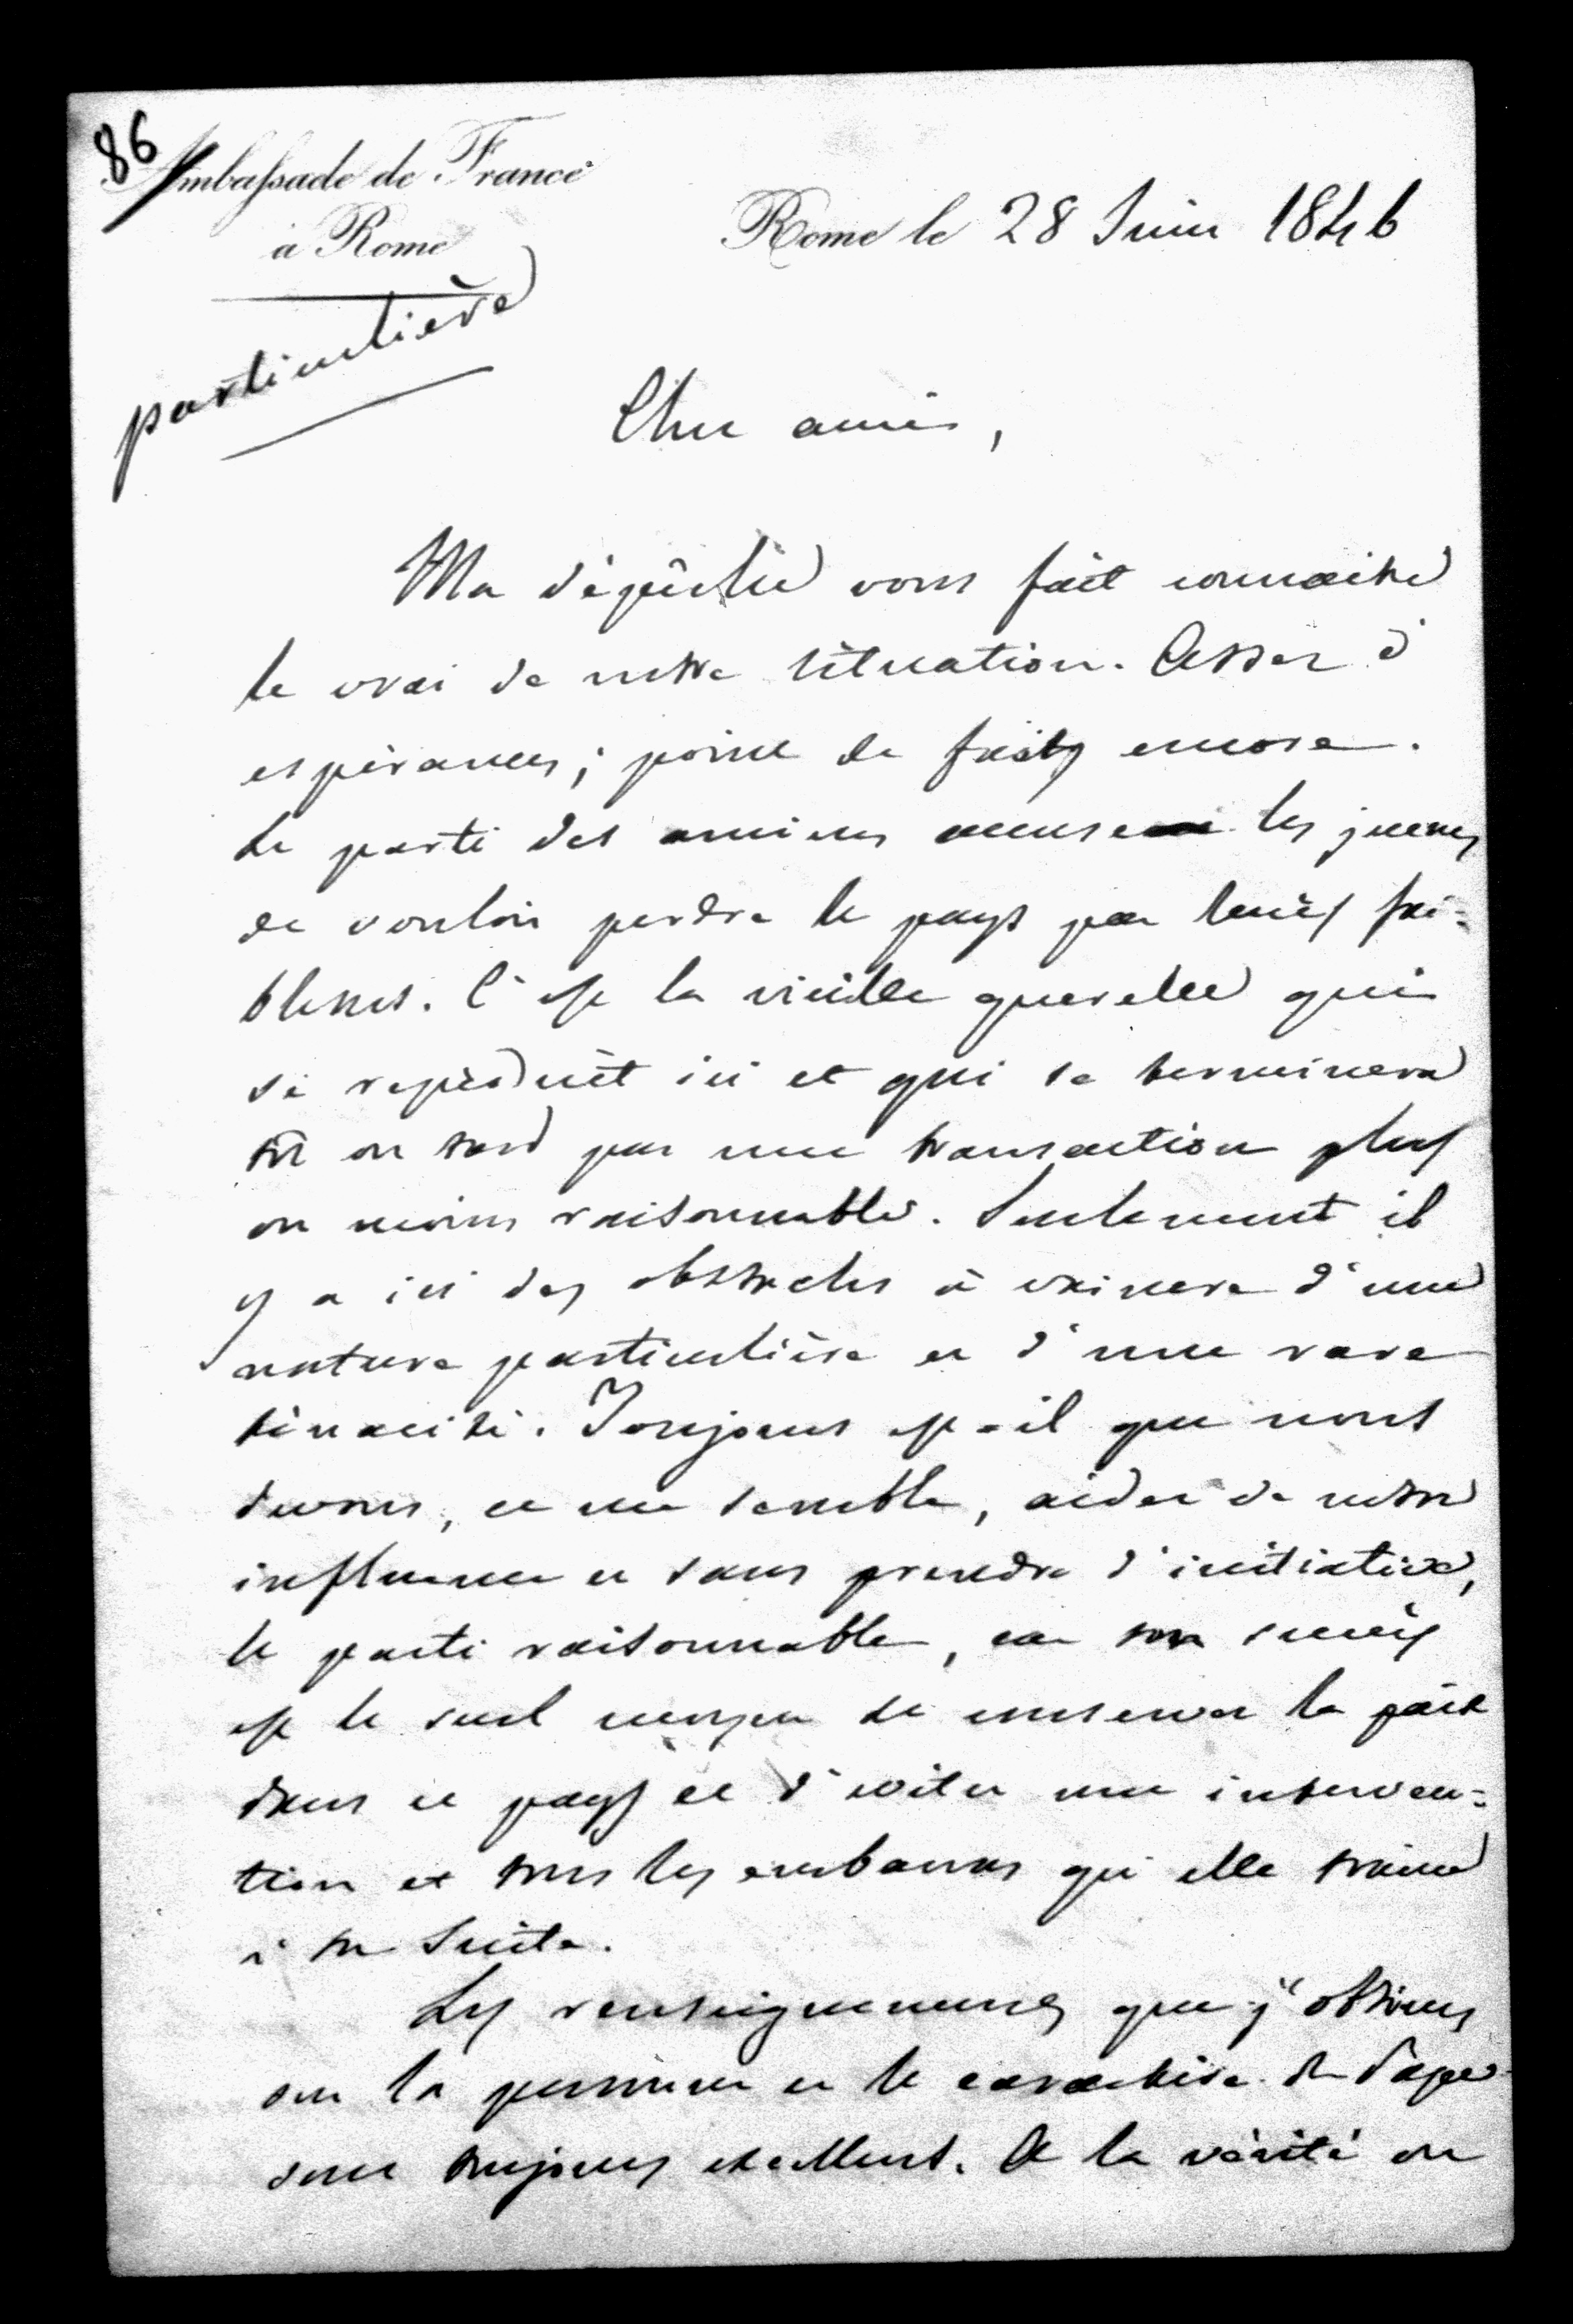 86
Ambassade de France
à Rome
Rome le 28 Juin 1846
particulière
Cher ami,
Ma dépêche vous fait connaitre
le vrai de notre situation. Assez d'
espérances; point de faits encore.
Le parti des anciens accuse les jeunes
de vouloir perdre le pays par leurs fai-
blesses. C'est la vieille querelle qui
se reproduit ici et qui se terminera
tôt ou tard par une transaction plus
ou moins raisonnable. Seulement il
y a ici des obstacles à vaincre d'une
nature particulière et d'une rare
ténacité. Toujours est-il que nous
devons, ce me semble, aider de notre
influence et sans prendre d'initiative,
le parti raisonnable, car son succès
est le seul moyen de conserver la paix
dans ce pays et d'éviter une interven-
tion et tous les embarras qu'elle traine
à sa suite.
Les renseignements que j'obtiens
sur la personne et le caractère du Pape
sont toujours excellents. A la vérité on